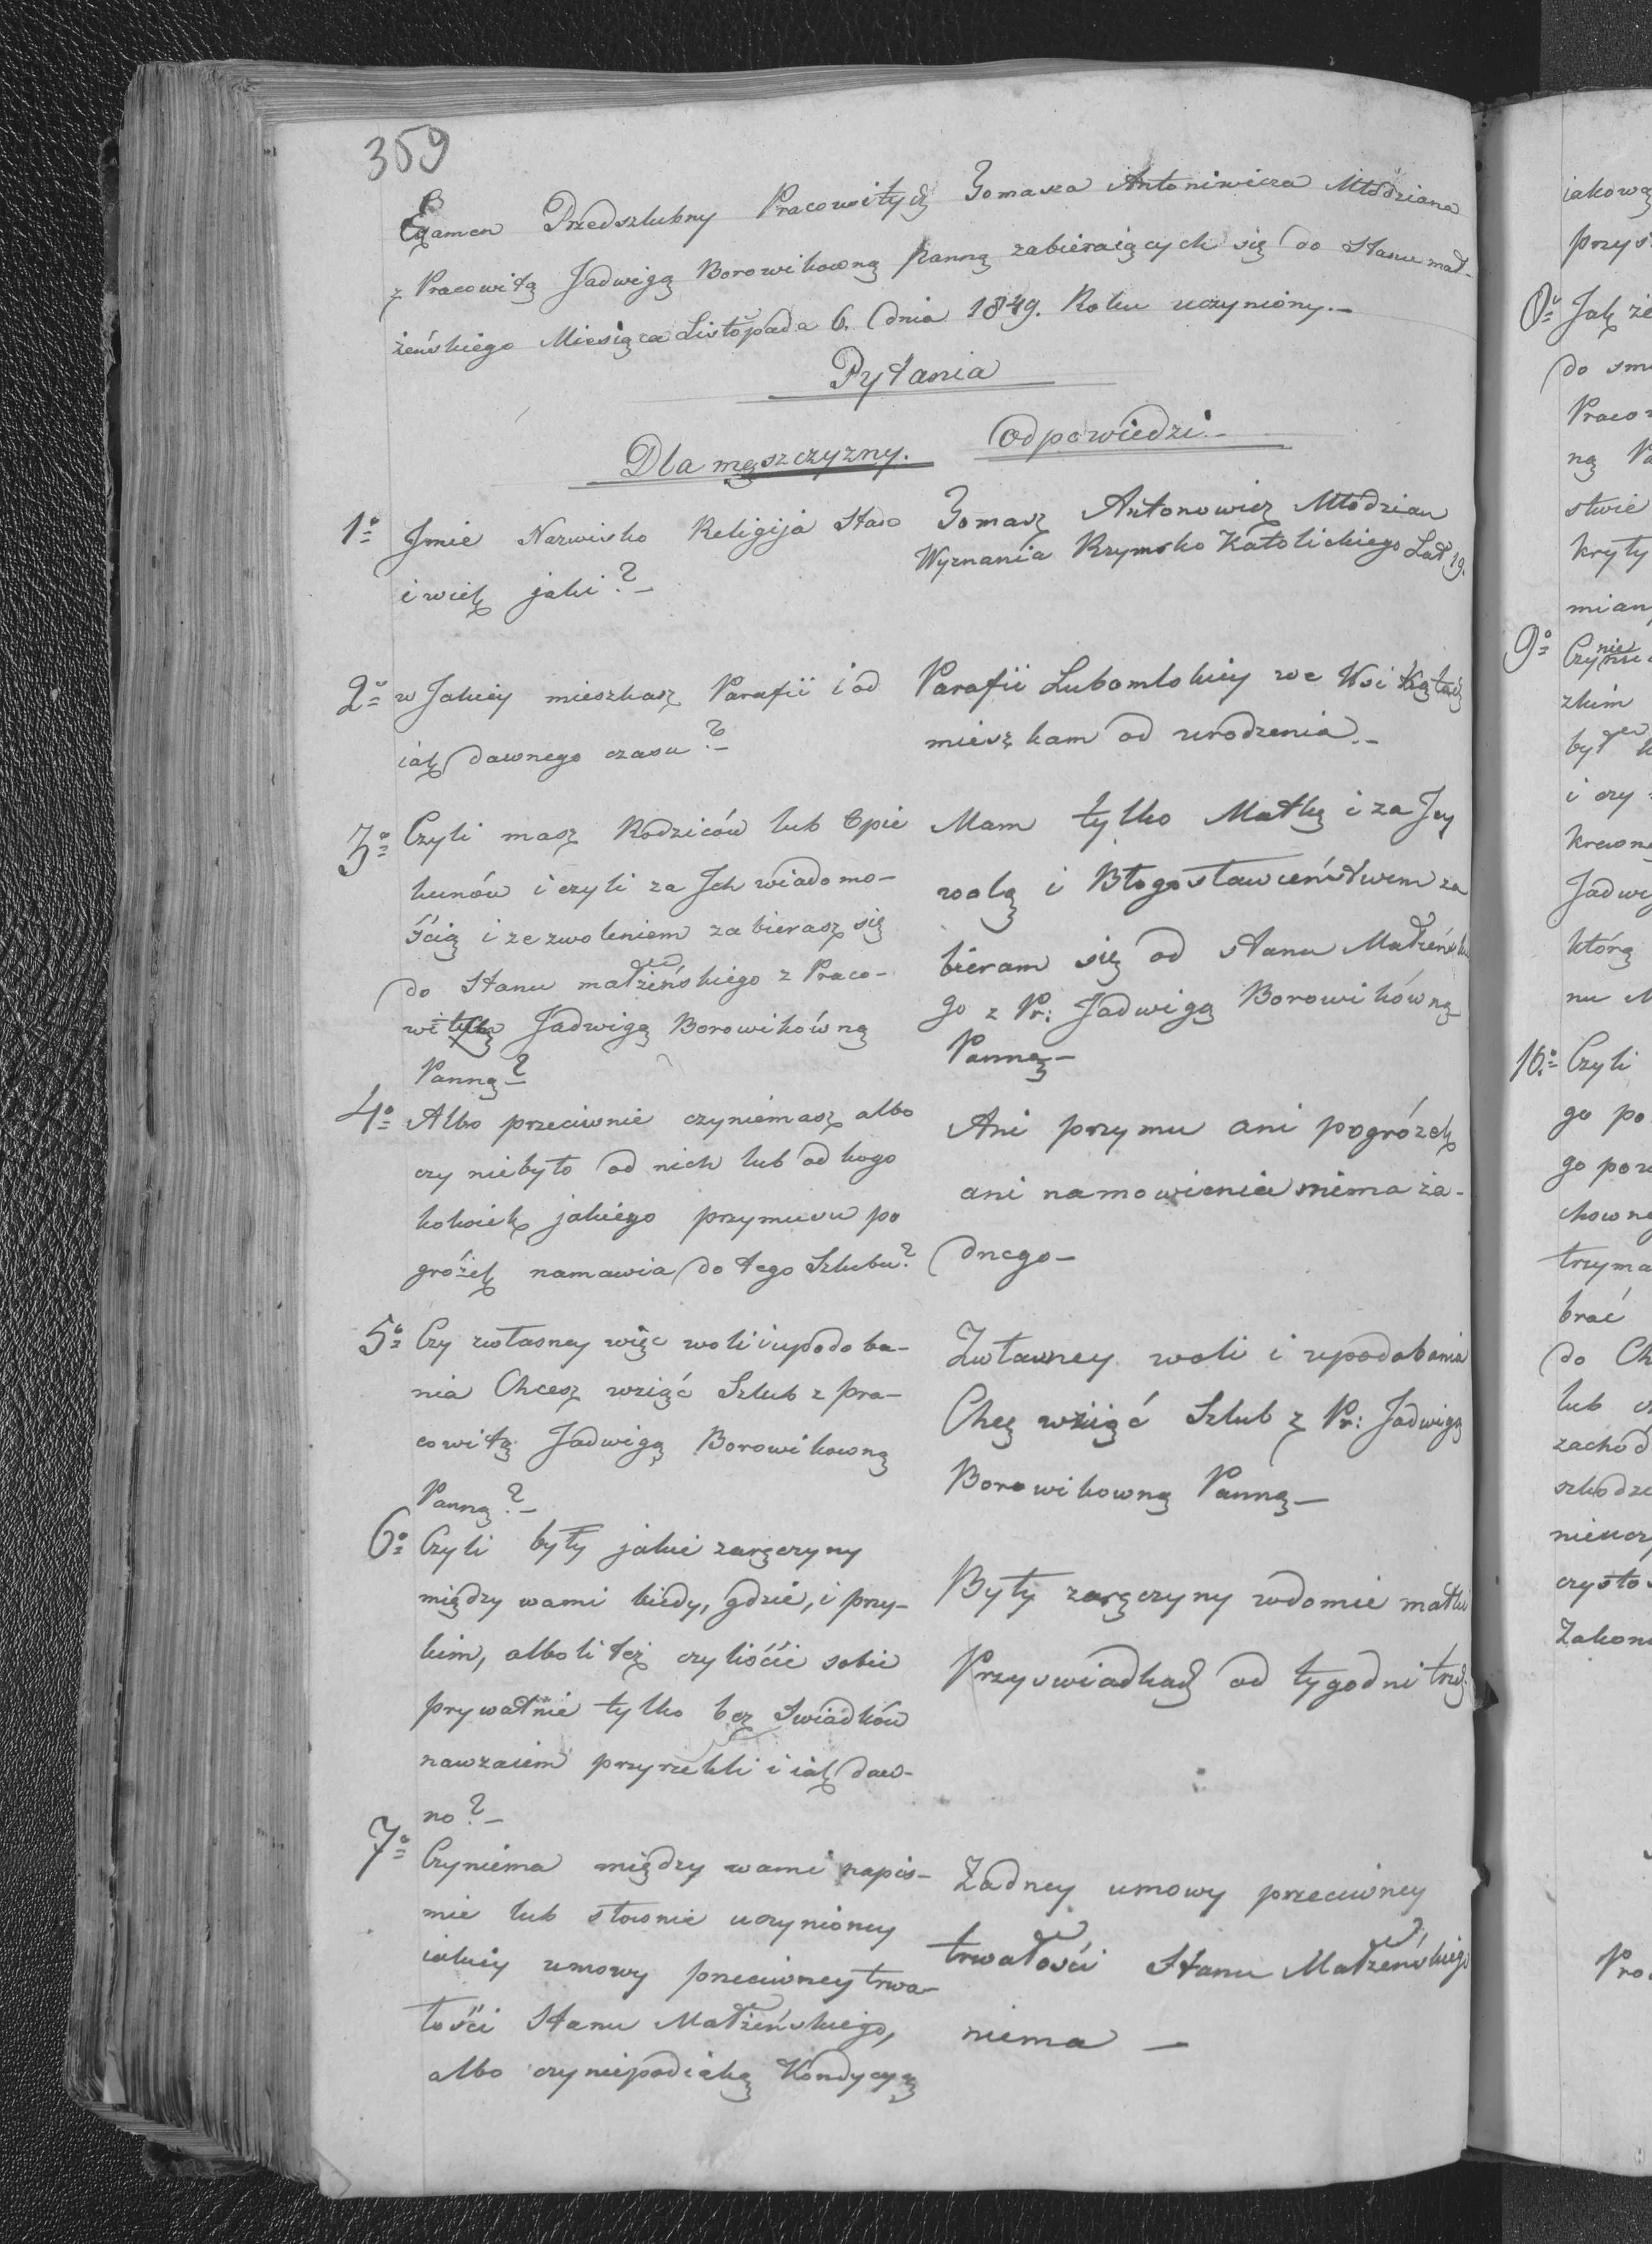 359
Examen Przedszlubny Pracowitych Tomasza Antoniwicza Młodziana
z Pracowitą Jadwigą Borowikowną Panną zabieraiących się do Stanu mał-
żeńskiego Miesiąca Listopada 6. dnia 1849. Roku uczyniony.—
Pytania
Dla męszczyzny.
Odpowiedzi.—
1º Jmie Nazwisko Religija Stan
i wiek jaki?—
Tomasz Antonowicz Młodzian
Wyznania Rzymsko Katolickiego Lat 29.
2º w Jakiey mieszkasz Parafii i od
iak dawnego czasu?—
Parafii Lubomlskiey we Wsi
mieszkam od urodzenia.—
3º Czyli masz Rodziców lub Opie
kunów i czyli za Jch wiadomo-
ścią i zezwoleniem zabierasz się
do Stanu małżeńskiego z Praco-
witą Jadwigą Borowikówną
Panną?—
Mam tylko Matkę i za Jey
wolą i Błogosławieństwem za
bieram się od stanu Małżeńskie
go z Pr: Jadwigą Borowikówną
Panną—
4º Albo przeciwnie czyniemasz albo
czy niebyło od nich lub od kogo
kolwiek jakiego przymusu po
gróżek namawia do tego Szlubu?
Ani przymu ani pogróżek
ani namowienia niema ża-
dnego—
5º Czy zwłasney więc woli i upodoba-
nia Chcesz wziąć Szlub z pra-
cowitą Jadwigą Borowikowną
Panną?—
Zwłasney woli i upodobania
Chcę wziąć Szlub z Pr: Jadwigą
Borowikowną Panną—
6º Czyli były jakie zaręczyny
między wami kiedy, gdzie, i przy-
kim, albo li też czyliście sobie
prywatnie tylko bez Swiadków
nawzaiem przyrzekli i iak daw-
no?—
Były zaręczyny wdomie matki
Przy swiadkach od tygodni trzech
7º Czyniema między wami napis-
mie lub słownie uczynioney
iakiey umowy przeciwney trwa-
łości Stanu Małżeńskiego,
albo czy niepodiaką Kondycyą
Żadney umowy przeciwney
trwałości Stanu Małżeńskiego
niema —
iakową
przys
8º Jak że
do sm
Pracow
ną Pa
stwie
kryty
mian
9º Czy nie
zkim
był
i czy
krewne
Jadwig
którą
nu M
10º Czyli
go po
go pow
chowne
trzyma
brać
do Ch
lub cz
zachod
szkodz
nieucz
czystos
Zakon
Pro